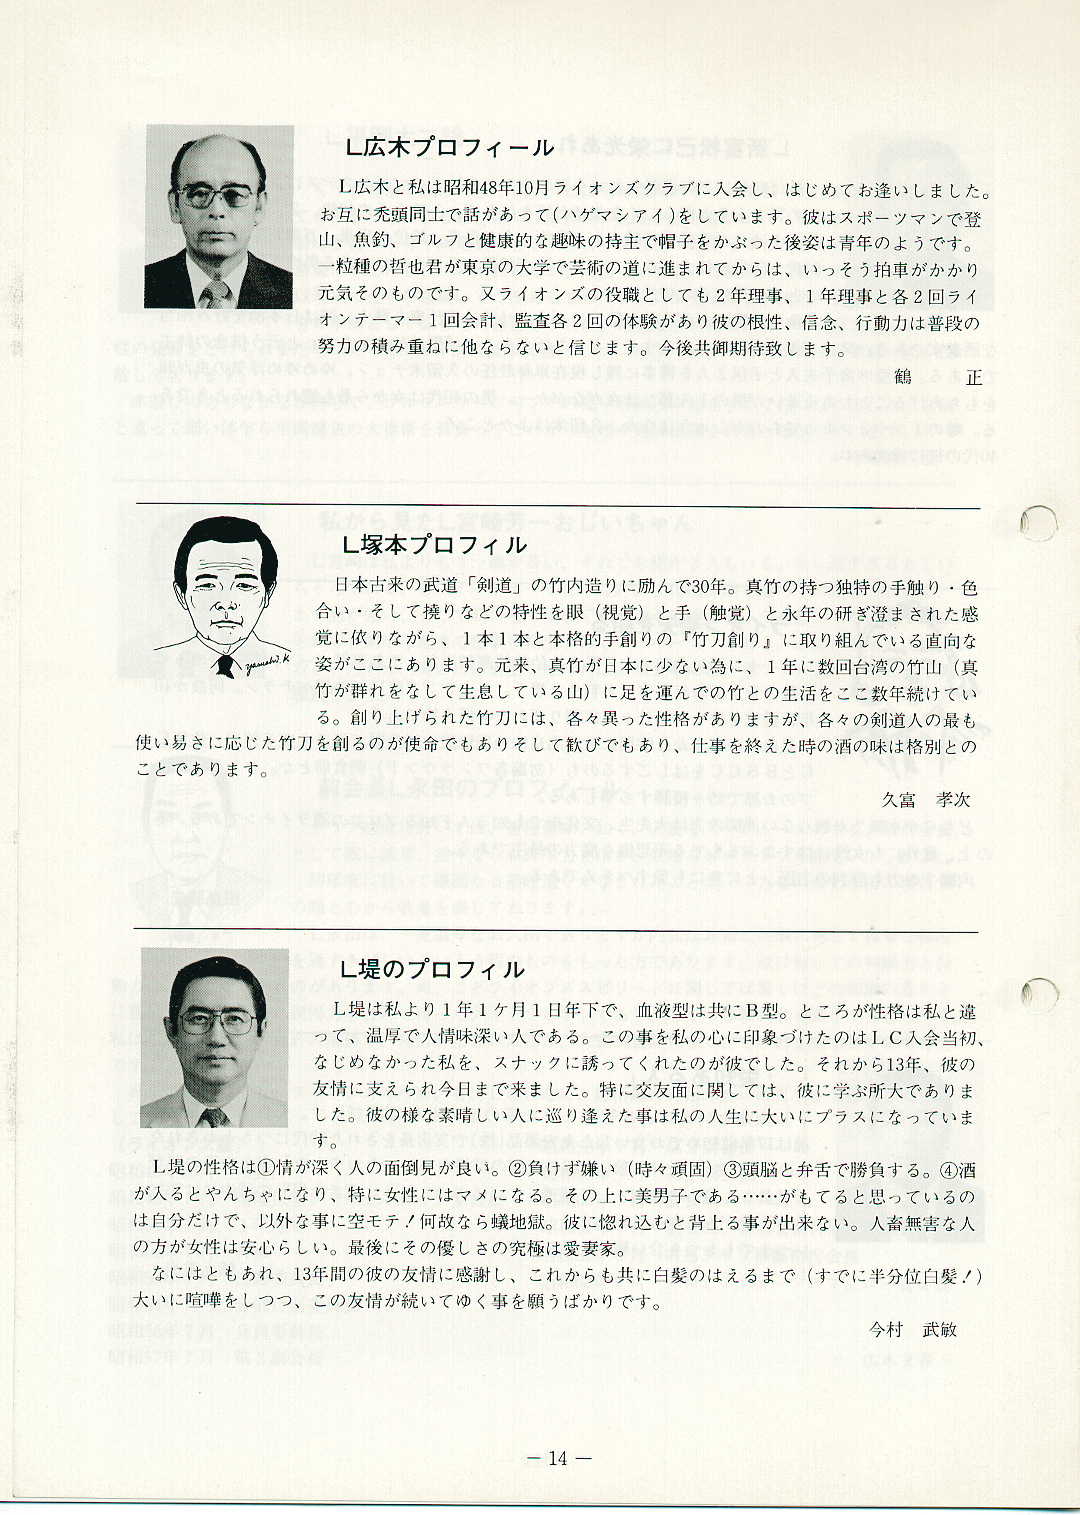 L広木プロフィール
L広木と私は昭和48年10月ライオンズクラブに入会し、はじめてお逢いしました。
お互に禿頭同士で話があって(ハゲマシアイ)をしています。彼はスポーツマンで登
山、魚釣、ゴルフと健康的な趣味の持主で帽子をかぶった後姿は青年のようです。
一粒種の哲也君が東京の大学で芸術の道に進まれてからは、いっそう拍車がかかり
元気そのものです。又ライオンズの役職としても2年理事、1年理事と各2回ライ
オンテーマー1回会計、監査各2回の体験があり彼の根性、信念、行動力は普段の
努力の積み重ねに他ならないと信じます。今後共御期待致します。
鶴　　正
L塚本プロフィル
日本古来の武道「剣道」の竹内造りに励んで30年。真竹の持つ独特の手触り・色
合い・そして撓りなどの特性を眼（視覚）と手（触覚）と永年の研ぎ澄まされた感
覚に依りながら、1本1本と本格的手創りの『竹刀創り』に取り組んでいる直向な
姿がここにあります。元来、真竹が日本に少ない為に、1年に数回台湾の竹山（真
竹が群れをなして生息している山）に足を運んでの竹との生活をここ数年続けてい
る。創り上げられた竹刀には、各々異った性格がありますが、各々の剣道人の最も
使い易さに応じた竹刀を創るのが使命でもありそして歓びでもあり、仕事を終えた時の酒の味は格別との
ことであります。
久富　孝次
L堤のプロフィル
L堤は私より1年1ケ月1日年下で、血液型は共にB型。ところが性格は私と違
って、温厚で人情味深い人である。この事を私の心に印象づけたのはLC入会当初、
なじめなかった私を、スナックに誘ってくれたのが彼でした。それから13年、彼の
友情に支えられ今日まで来ました。特に交友面に関しては、彼に学ぶ所大でありま
した。彼の様な素晴しい人に巡り逢えた事は私の人生に大いにプラスになっていま
す。
L堤の性格は①情が深く人の面倒見が良い。②負けず嫌い（時々頑固）③頭脳と弁舌で勝負する。④酒
が入るとやんちゃになり、特に女性にはマメになる。その上に美男子である……がもてると思っているの
は自分だけで、以外な事に空モテ！何故なら蟻地獄。彼に惚れ込むと背上る事が出来ない。人畜無害な人
の方が女性は安心らしい。最後にその優しさの究極は愛妻家。
なにはともあれ、13年間の彼の友情に感謝し、これからも共に白髪のはえるまで（すでに半分位白髪！）
大いに喧嘩をしつつ、この友情が続いてゆく事を願うばかりです。
今村　武敏
— 14 —